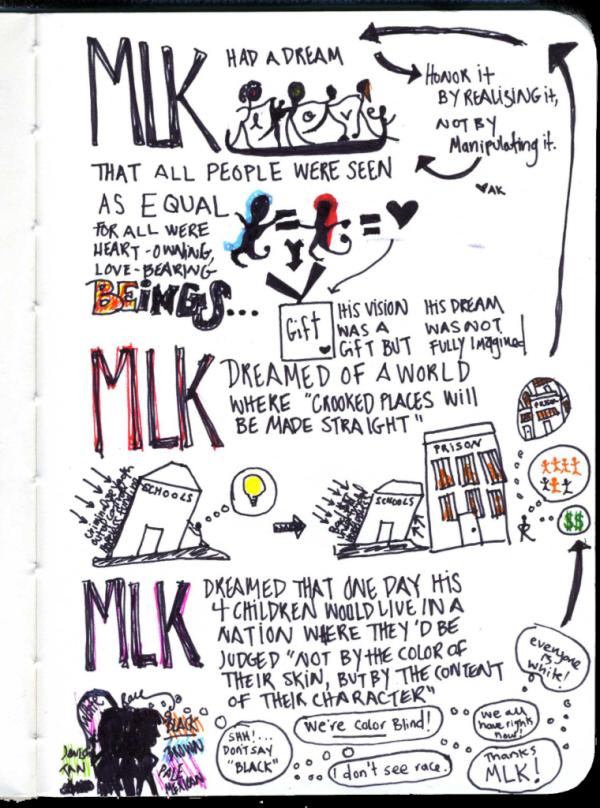 MLK
HAD A DREAM
HONOR it
BY REALISING it,
NOT BY
Manipulating it.
♥AK
THAT ALL PEOPLE WERE SEEN
AS EQUAL
FOR ALL WERE
HEART-OWNING,
LOVE-BEARING
BEiNGS...
Gift
HIS VISION
WAS A
GIFT BUT
HIS DREAM
WAS NOT
FULLY Imagined
MLK
DREAMED OF A WORLD
WHERE "CROOKED PLACES Will
BE MADE STRAIGHT"
PRISON
PRISON
SCHOOLS
SCHOOLS
$$
MLK
DREAMED THAT ONE DAY HIS
4 CHILDREN WOULD LIVE IN A
NATION WHERE THEY'D BE
JUDGED "NOT BY THE COLOR OF
THEIR SKIN, BUT BY THE CONTENT
OF THEIR CHARACTER"
everyone
is
white!
White
Race
BLACK
BROWN
TAN
PALE
SHH!...
DON'T SAY
"BLACK"
We're color Blind!
I don't see race.
we all
have rights
now!
THANKS
MLK!